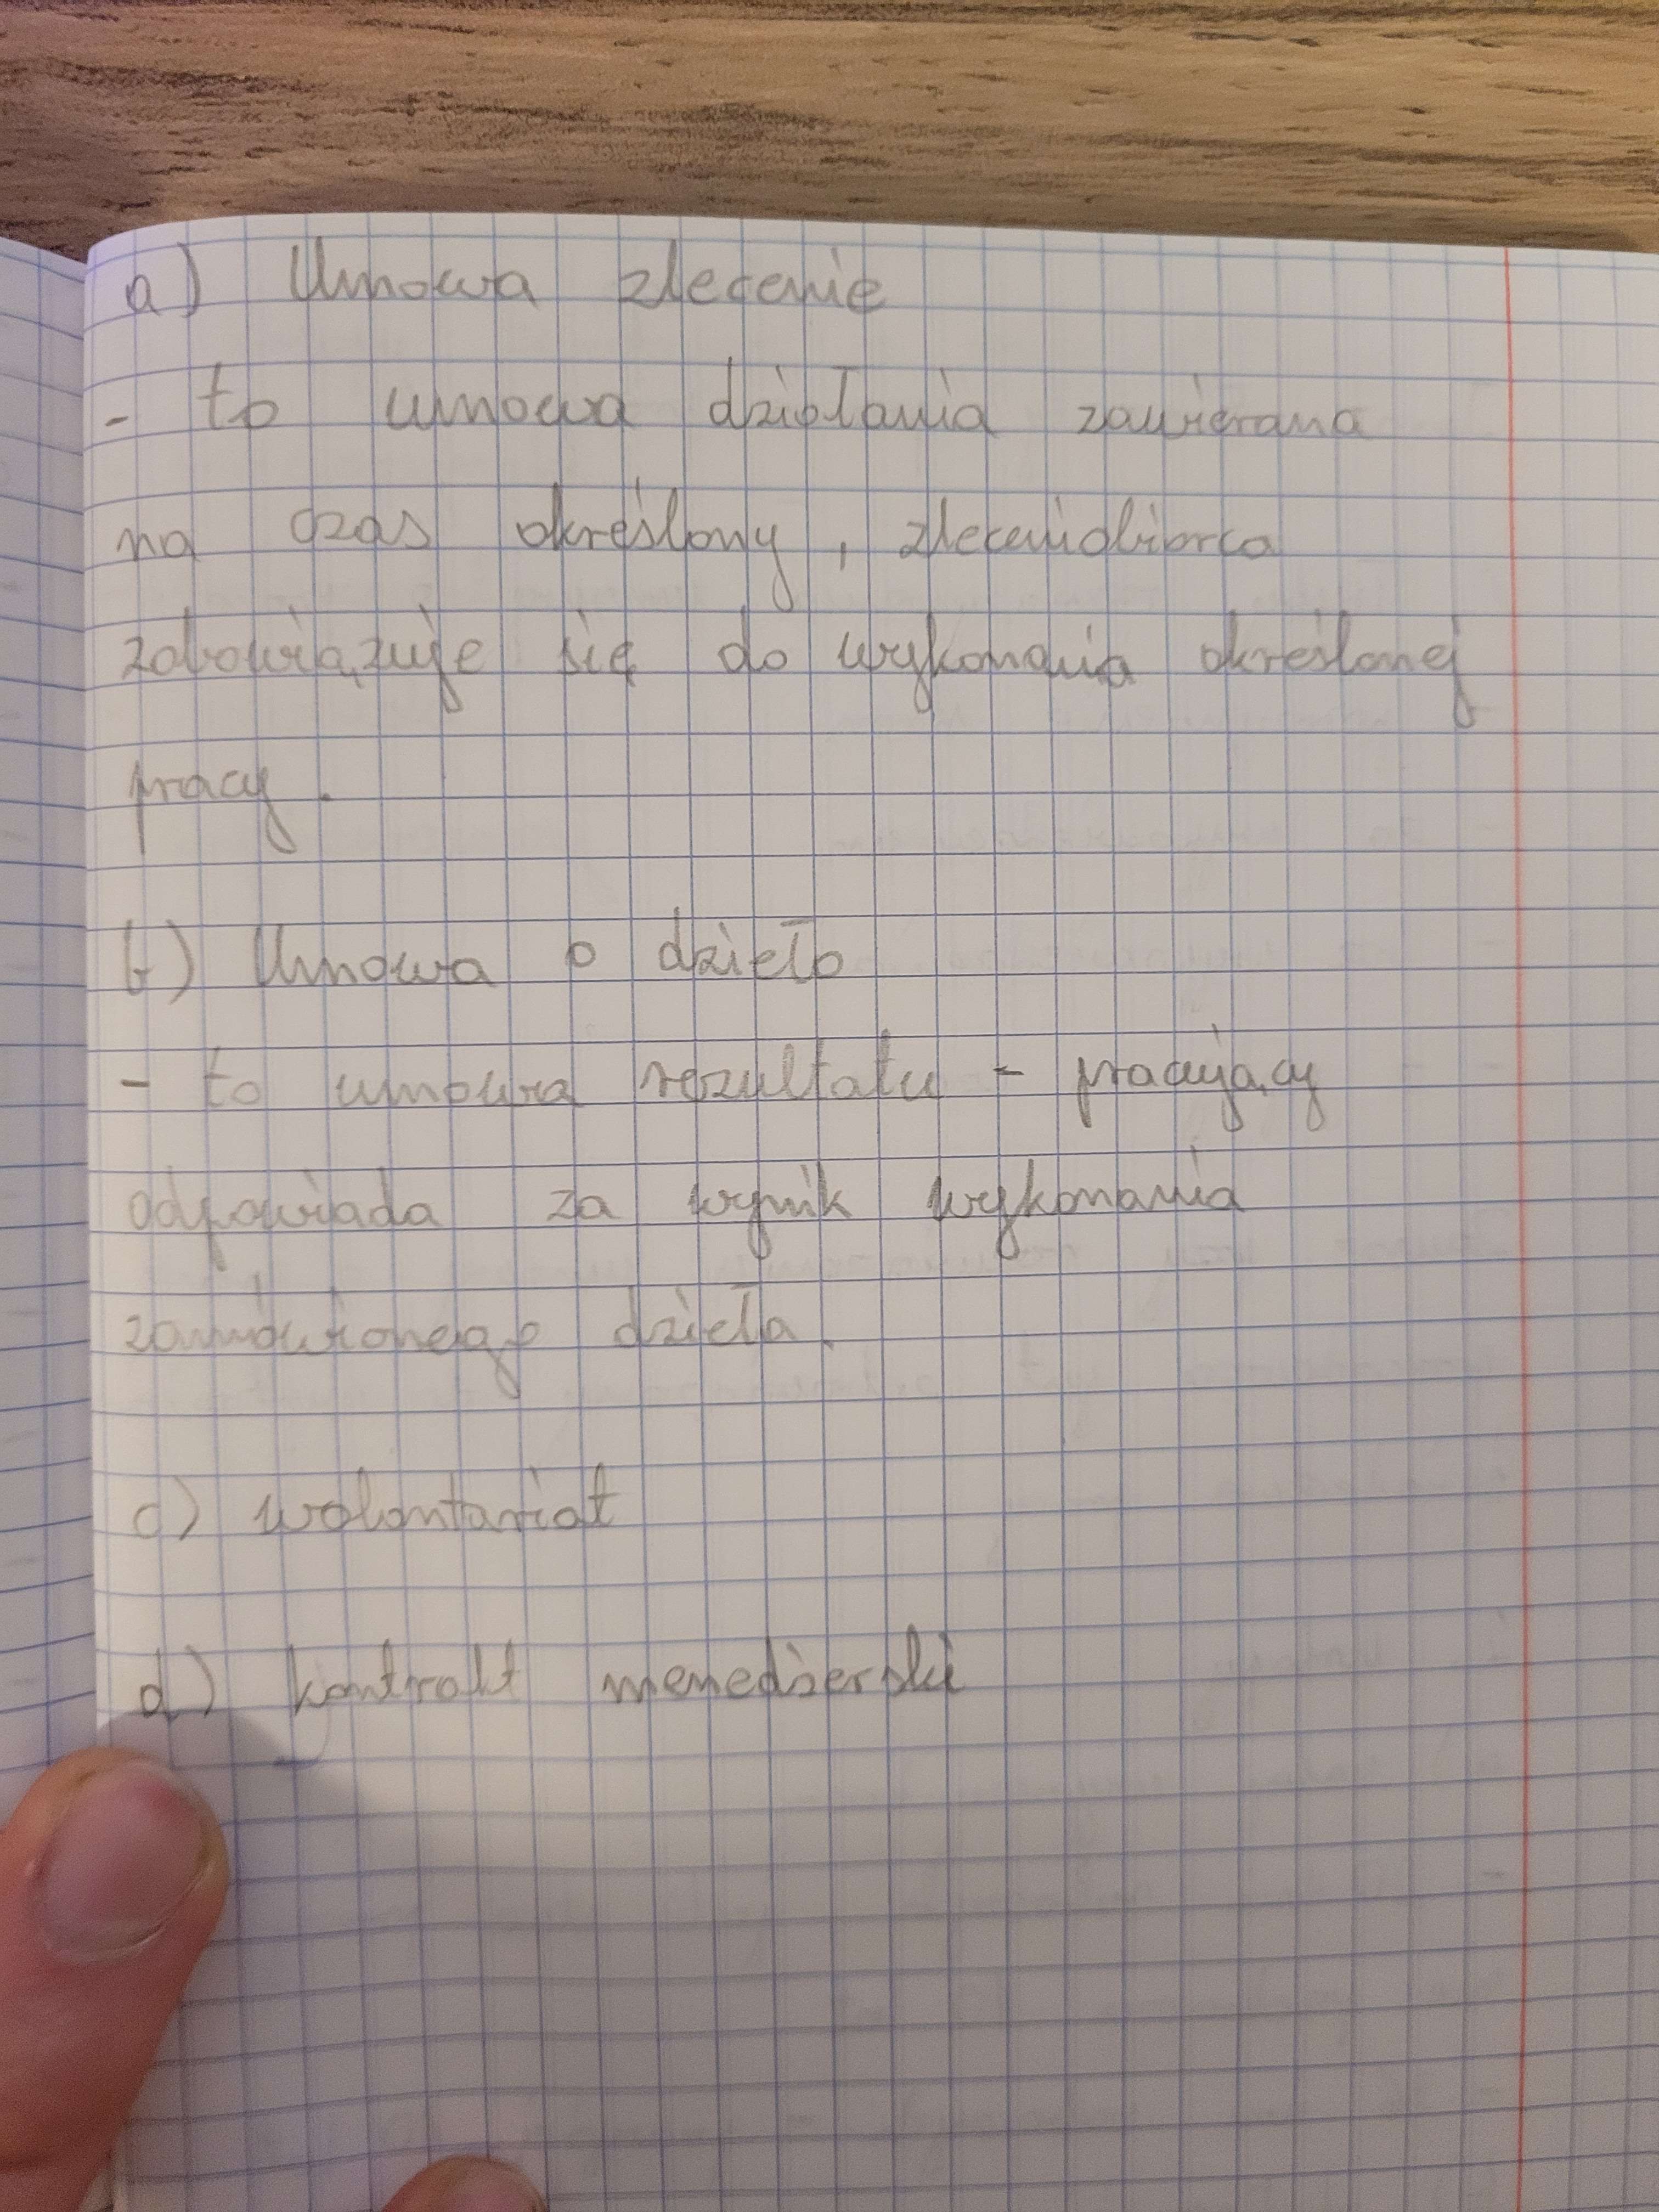 a) Umowa zlecenie
- to umowa działania zawierana
na czas określony, zleceniobiorca
zobowiązuje się do wykonania określonej
pracy.
b) Umowa o dzieło
- to umowa rezultatu - pracujący
odpowiada za wynik wykonania
zamówionego dzieła.
c) wolontariat
d) kontrakt menedżerski